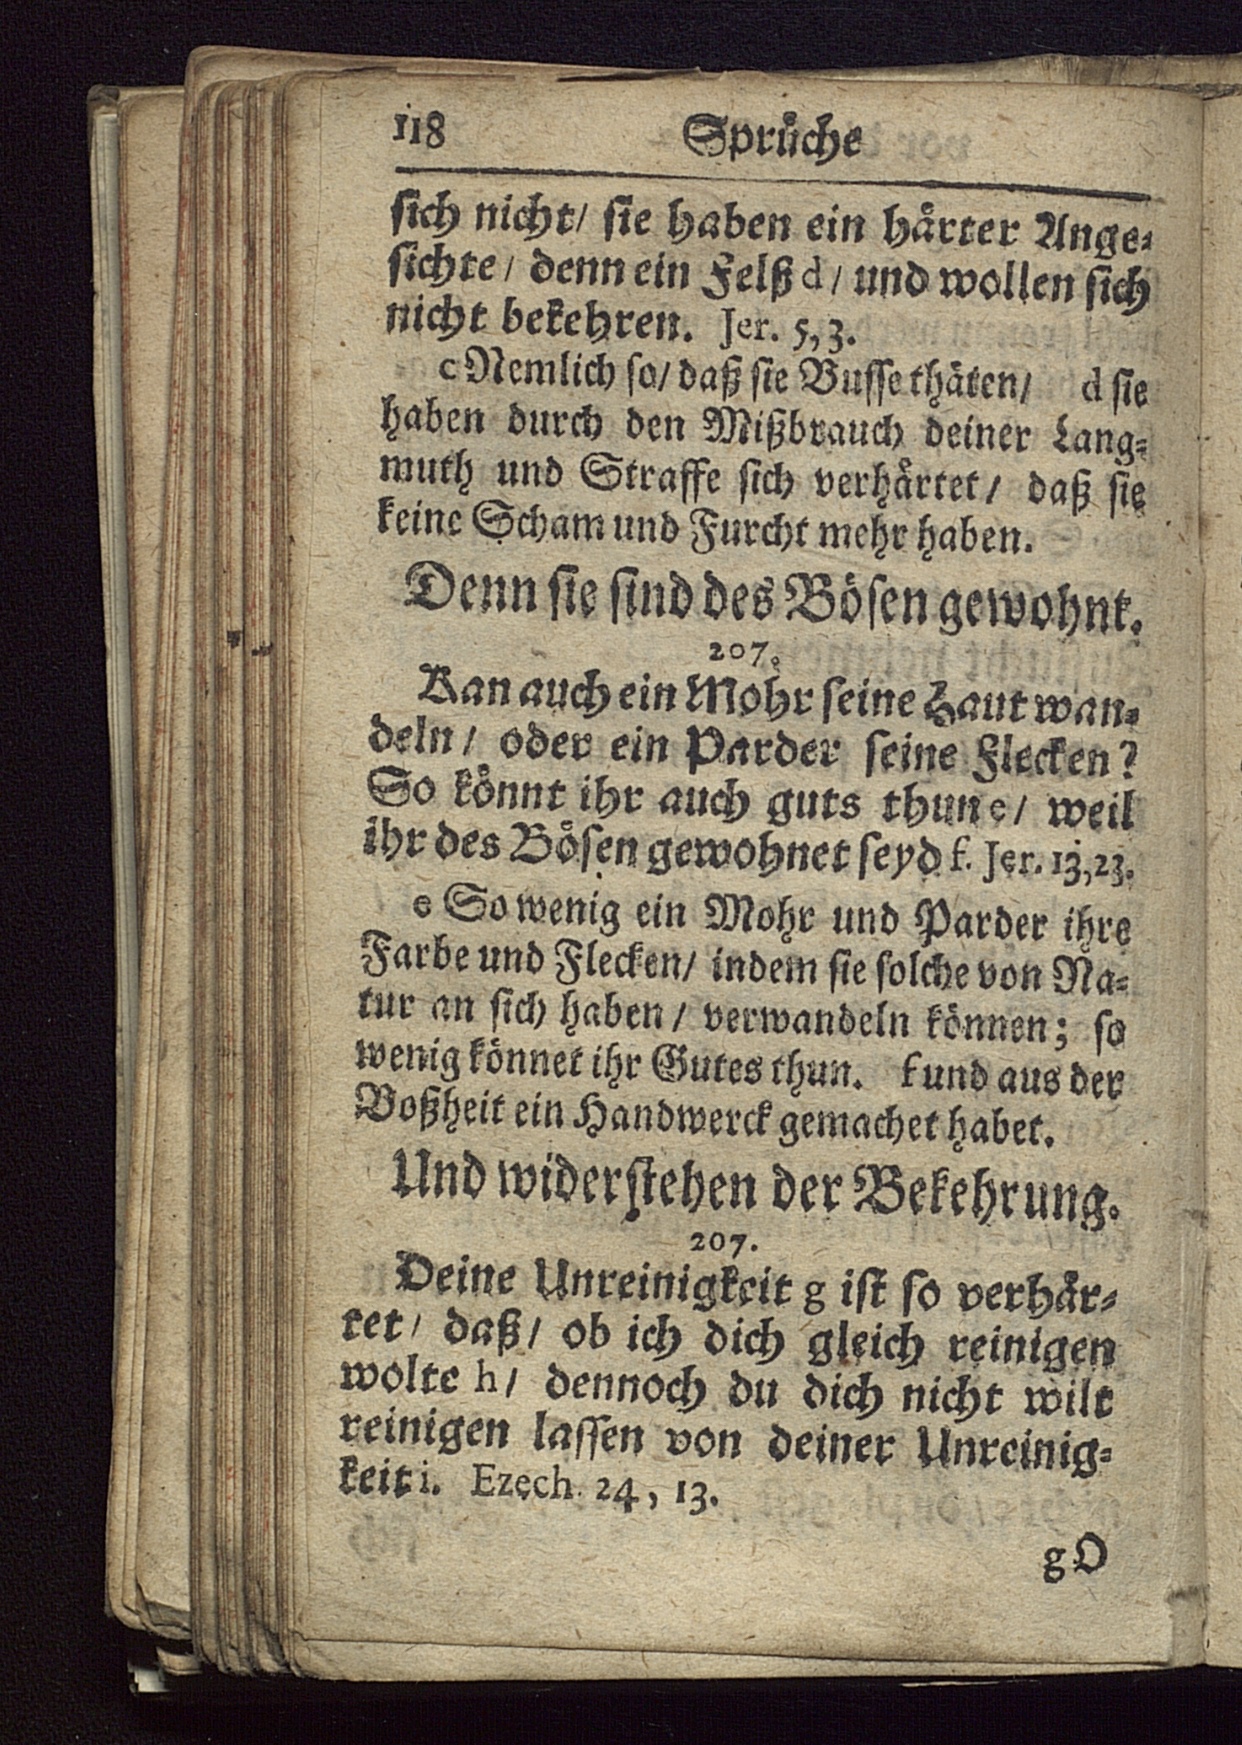 118 Sprüche
sich nicht/ sie haben ein härter Ange-
sichte/ denn ein Felß d/ und wollen sich
nicht bekehren. Jer. 5,3.
c Nemlich so/ daß sie Busse thäten/ d sie
haben durch den Mißbrauch deiner Lang-
muth und Straffe sich verhärtet/ daß sie
keine Scham und Furcht mehr haben.
Denn sie sind des Bösen gewohnt.
207.
Kan auch ein Mohr seine Haut wan-
deln/ oder ein Parder seine Flecken?
So könnt ihr auch guts thun e/ weil
ihr des Bösen gewohnet seyd f. Jer. 13,23.
e So wenig ein Mohr und Parder ihre
Farbe und Flecken/ indem sie solche von Na-
tur an sich haben/ verwandeln können; so
wenig könnet ihr Gutes thun. f und aus der
Boßheit ein Handwerck gemachet habet.
Und widerstehen der Bekehrung.
207.
Deine Unreinigkeit g ist so verhär-
tet/ daß/ ob ich dich gleich reinigen
wolte h/ dennoch du dich nicht wilt
reinigen lassen von deiner Unreinig-
keit i. Ezech. 24, 13.
g O